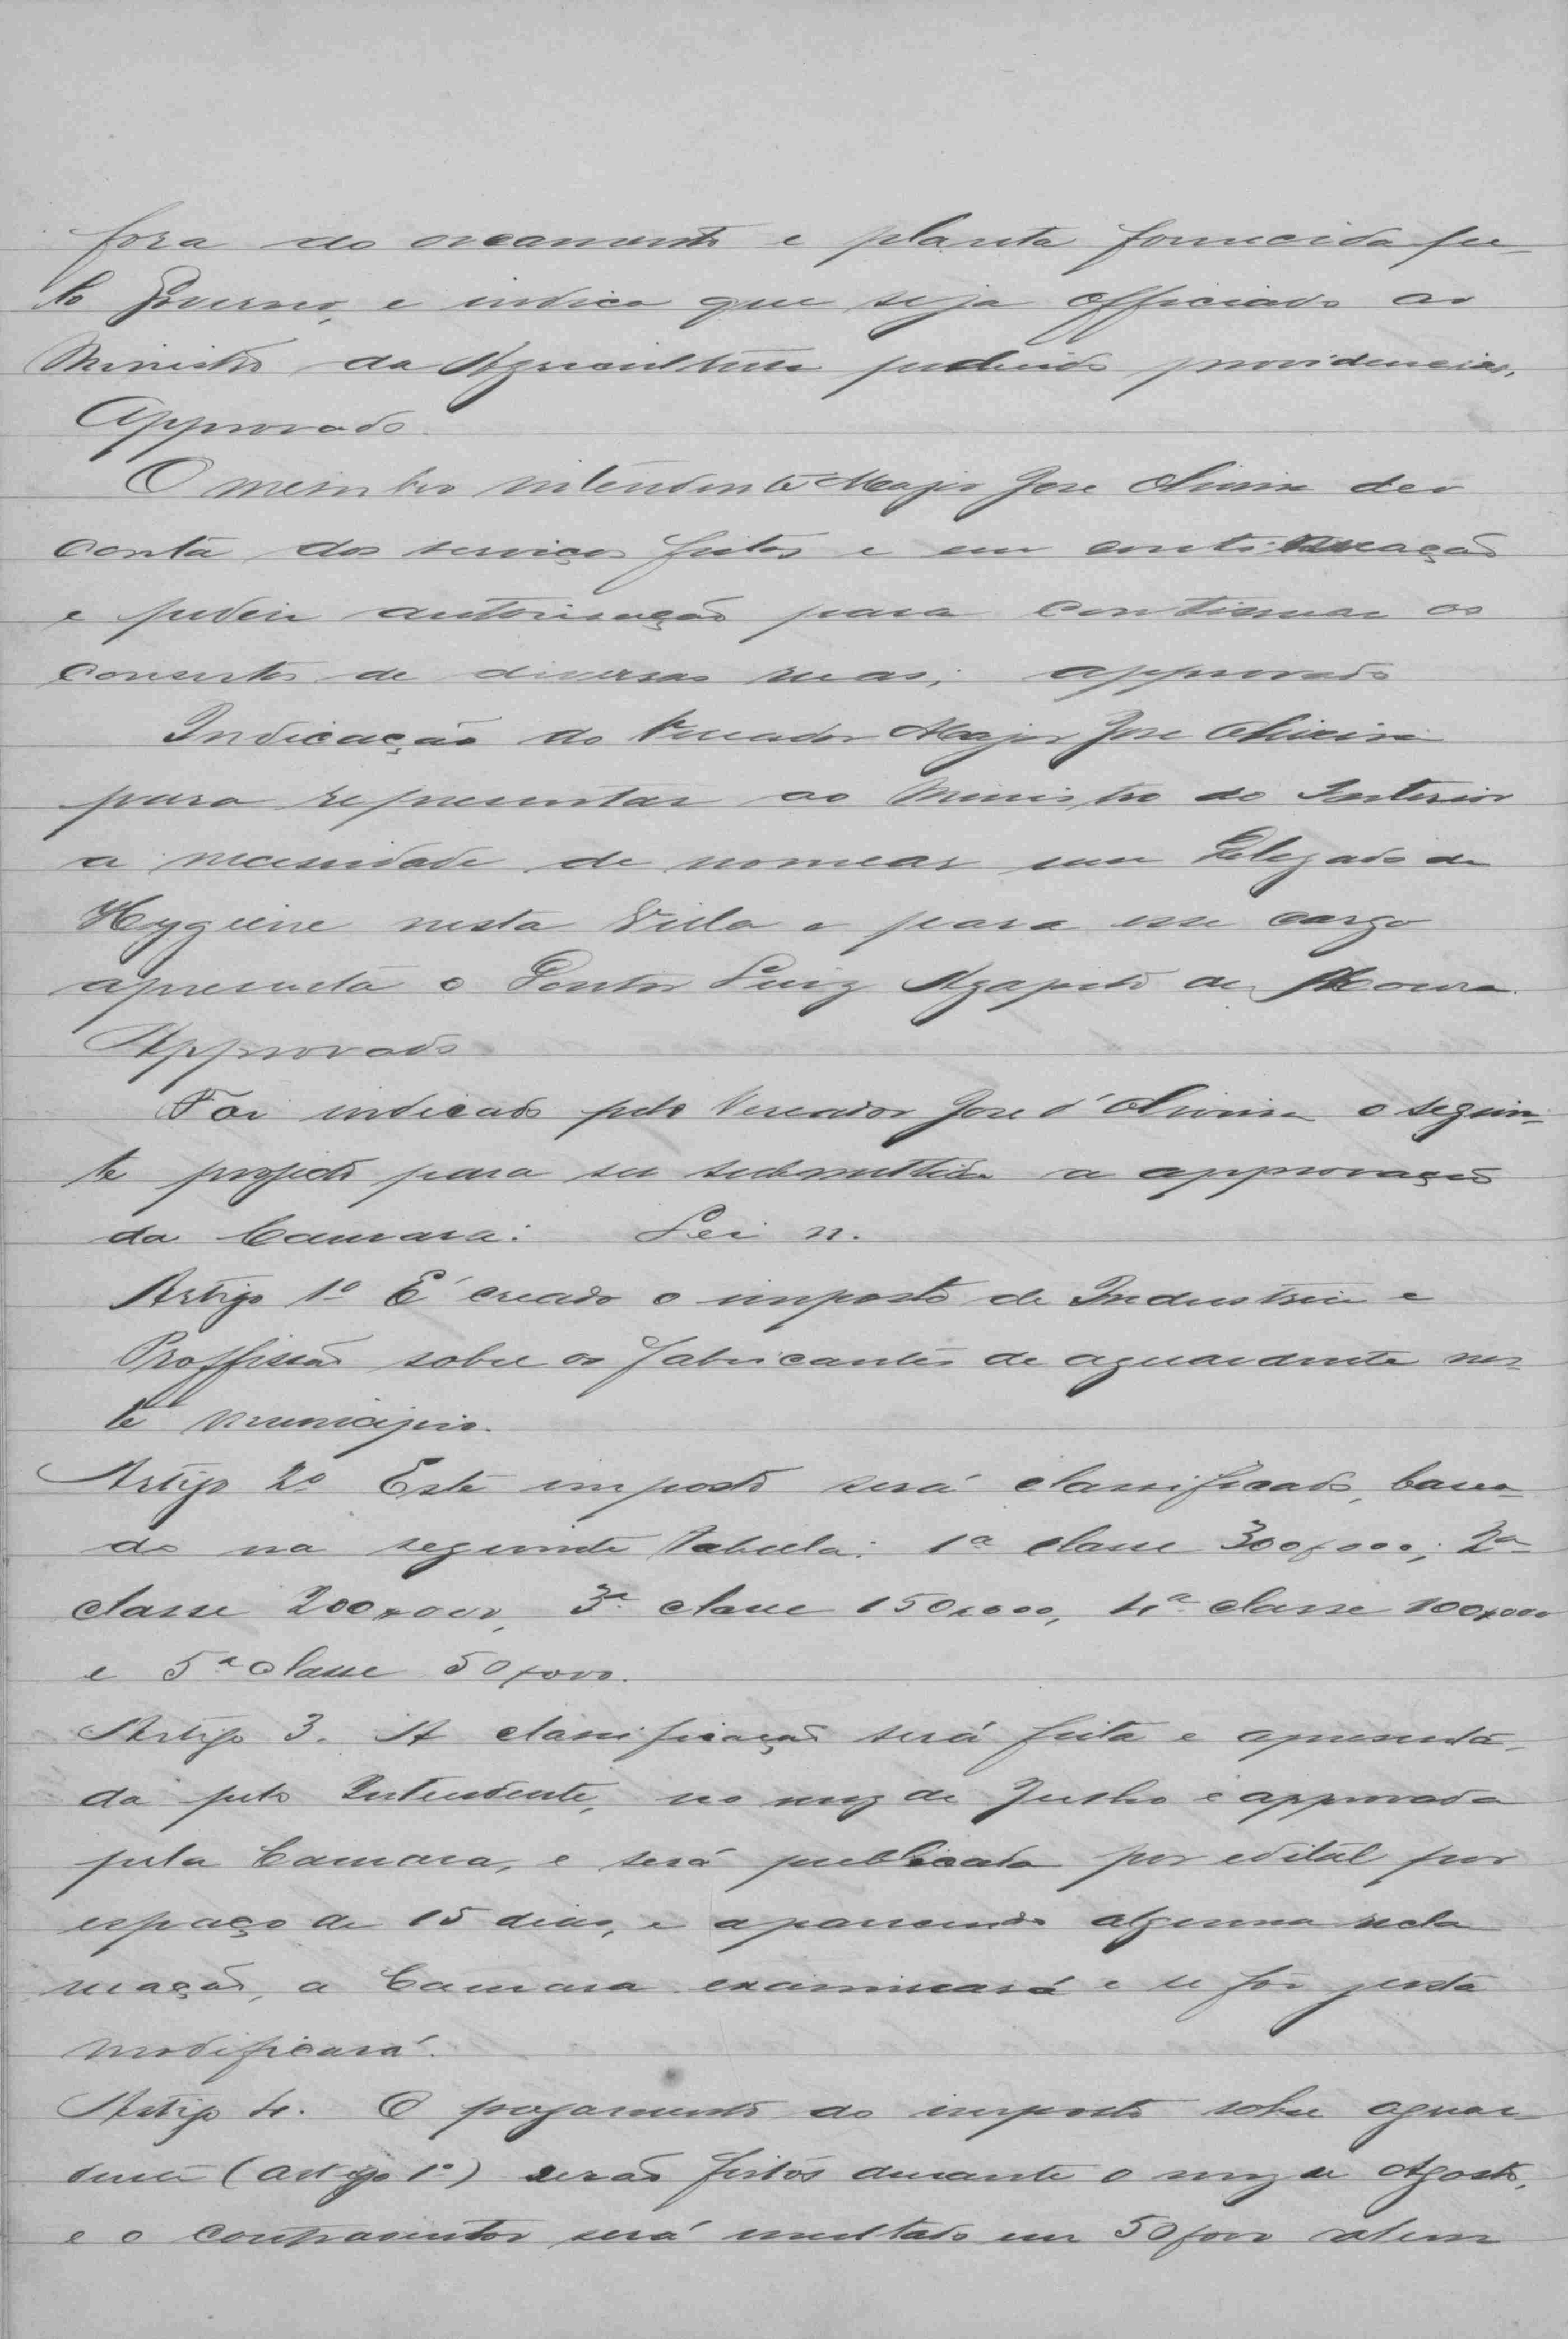 fora do orcamento e planta fornecida pe-
lo Governo, e indica que seja officiado ao
Ministro da Agricultura pedindo providencias.
Approvado
O membro intendente Major Jose Oliveira deo
conta dos serviços feitos e em continuação
e pedio autorisação para continuar os
consertos de diversas ruas; approvado
Indicação do Vereador Major Jose Oliveira
para representar ao Ministro do Interior
a necessidade de nomear um Delegado de
Hygiene nesta Villa e para esse cargo
apresenta o Doutor Luiz Agapito de Moura.
Approvado
Foi indicado pelo Vereador Jose d'Oliveira o seguin-
te projecto para ser submettido a approvação
da Camara: Lei n.
Artigo 1º É creado o imposto de Industria e
Proffissão sobre os fabricantes de aguardente nes-
te municipio.
Artigo 2º Este imposto será classificado, basea-
do na seguinte tabella: 1ª classe 300$000; 2ª
classe 200$000, 3ª classe 150$000, 4ª classe 100$000
e 5ª classe 50$000.
Artigo 3. A classificação será feita e apresenta-
da pelo Intendente, no mez de Junho e approvada
pela Camara, e será publicada por edital por
espaço de 15 dias, e aparecendo alguma recla
mação, a Camara examinará e se for justa
modificará.
Artigo 4. O pagamento do imposto sobre aguar-
dente (artigo 1º) serão feitos durante o mez de Agosto,
e o contraventor será multado em 50$000 alem